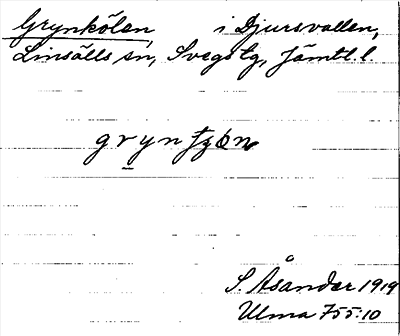 Grynkölen, i Djursvallen,
Linsälls sn, Svegs tg, Jämtl. l.
gryntjön
S. Åsander 1919
Ulma 755:10